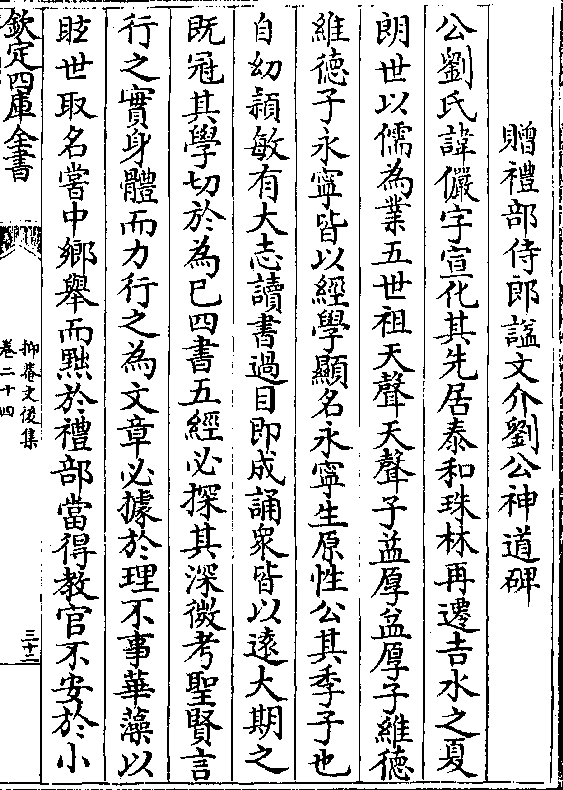 贈禮部侍郎諡文介劉公神道碑
公劉氏諱儼字宣化其先居泰和珠林再遷吉水之夏
朗世以儒為業五世祖天聲天聲子益厚益厚子維德
維德子永寧皆以經學顯名永寧生原性公其季子也
自幼穎敏有大志讀書過目即成誦衆皆以遠大期之
既冠其學切於為已四書五經必探其深微考聖賢言
行之實身體而力行之為文章必據於理不事華藻以
眩世取名嘗中鄉舉而黜於禮部當得教官不安於小
欽定四庫全書
抑菴文後集
卷二十四
三十二